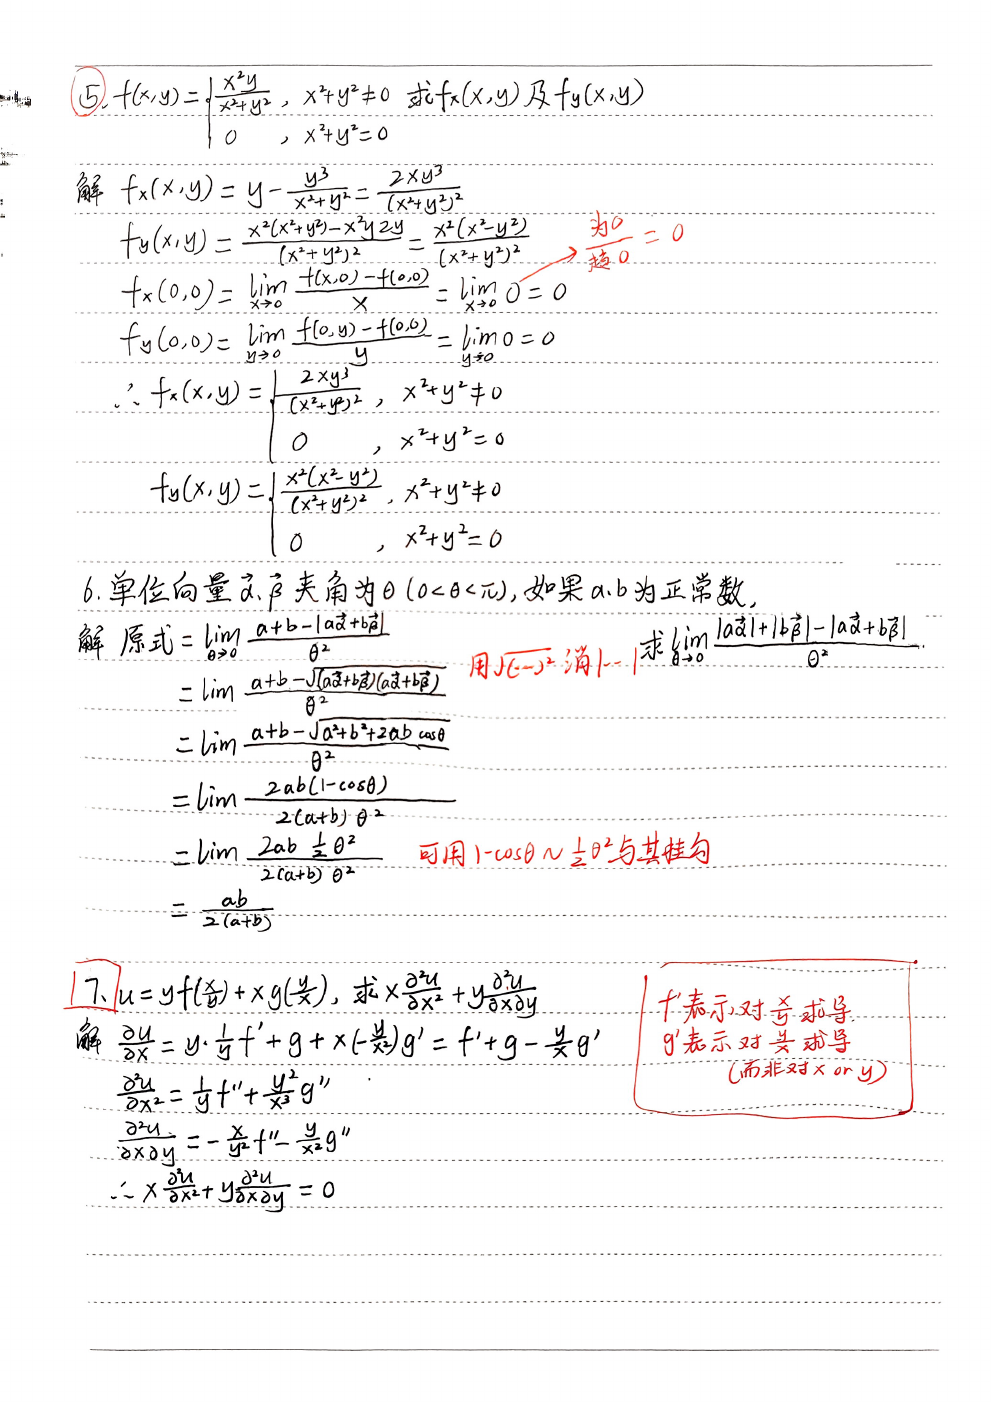 ⑤. f(x,y) = { x²y/(x²+y²) , x²+y²≠0 求fx(x,y)及fy(x,y)
0 , x²+y²=0
解 fx(x,y) = y - y³/(x²+y²) = 2xy³/(x²+y²)²
fy(x,y) = (x²(x²+y²)-x²y2y)/(x²+y²)² = x²(x²-y²)/(x²+y²)² 为0/趋0 = 0
fx(0,0) = lim x→0 (f(x,0)-f(0,0))/x = lim x→0 0 = 0
fy(0,0) = lim y→0 (f(0,y)-f(0,0))/y = lim y→0 0 = 0
∴ fx(x,y) = { 2xy³/(x²+y²)² , x²+y²≠0
0 , x²+y²=0
fy(x,y) = { x²(x²-y²)/(x²+y²)² , x²+y²≠0
0 , x²+y²=0
6. 单位向量α⃗、β⃗夹角为θ(0<θ<π),如果a.b为正常数,
求 lim θ→0 (|aα⃗|+|bβ⃗|-|aα⃗+bβ⃗|)/θ².
解 原式 = lim θ→0 (a+b-|aα⃗+bβ⃗|)/θ²
用√(…)² 消|…|
= lim (a+b-√(aα⃗+bβ⃗)(aα⃗+bβ⃗))/θ²
= lim (a+b-√a²+b²+2ab cosθ)/θ²
= lim 2ab(1-cosθ)/(2(a+b) θ²)
= lim (2ab ½ θ²)/(2(a+b) θ²) 可用1-cosθ ~ ½θ²与其挂勾
= ab/(2(a+b))
7、u = yf(x/y) + xg(y/x), 求x ∂²u/∂x² + y ∂²u/∂x∂y
解 ∂u/∂x = y·1/y f' + g + x(-y/x²)g' = f' + g - y/x g'
∂²u/∂x² = 1/y f'' + y²/x³ g''
∂²u/∂x∂y = -x/y² f'' - y/x² g''
∴ x ∂²u/∂x² + y ∂²u/∂x∂y = 0
f'表示对x/y求导.
g'表示对y/x求导
(而非对x or y)